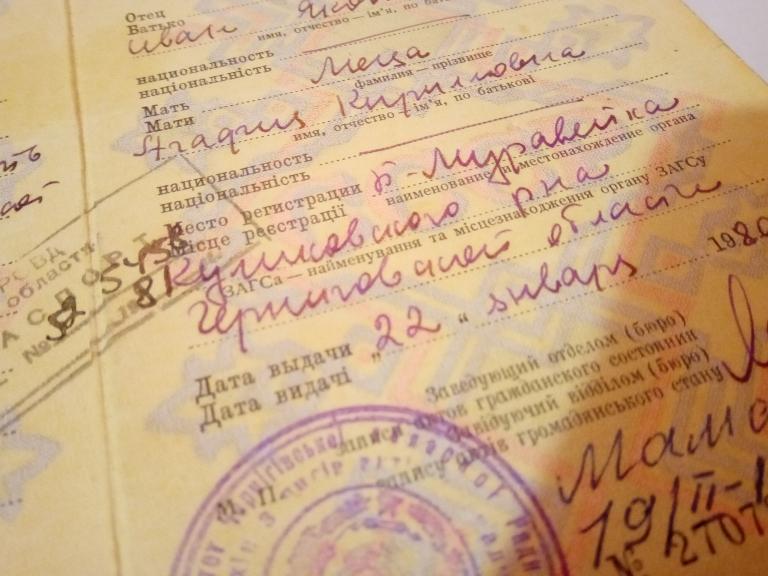 Отец
Батько
Иван
имя, отчество — ім'я, по батькові
национальность
національність
Меца
фамилия — прізвище
Мать
Мати
Агафия Кирилловна
имя, отчество — ім'я, по батькові
национальность
національність
Место регистрации Б-Муравейка
Місце реєстрації
наименование и местонахождение органа
Куликовского р-на
ЗАГСа — найменування та місцезнаходження органу ЗАГСу
Черниговской области
Дата выдачи „22“ января 1980
Дата видачі
Заведующий отделом (бюро)
записи актов гражданского состояния
Завідуючий відділом (бюро)
запису актів громадянського стану
М. П.
РОВД
области
ПАСПОРТ
№
81
19/II-1
№ 2707